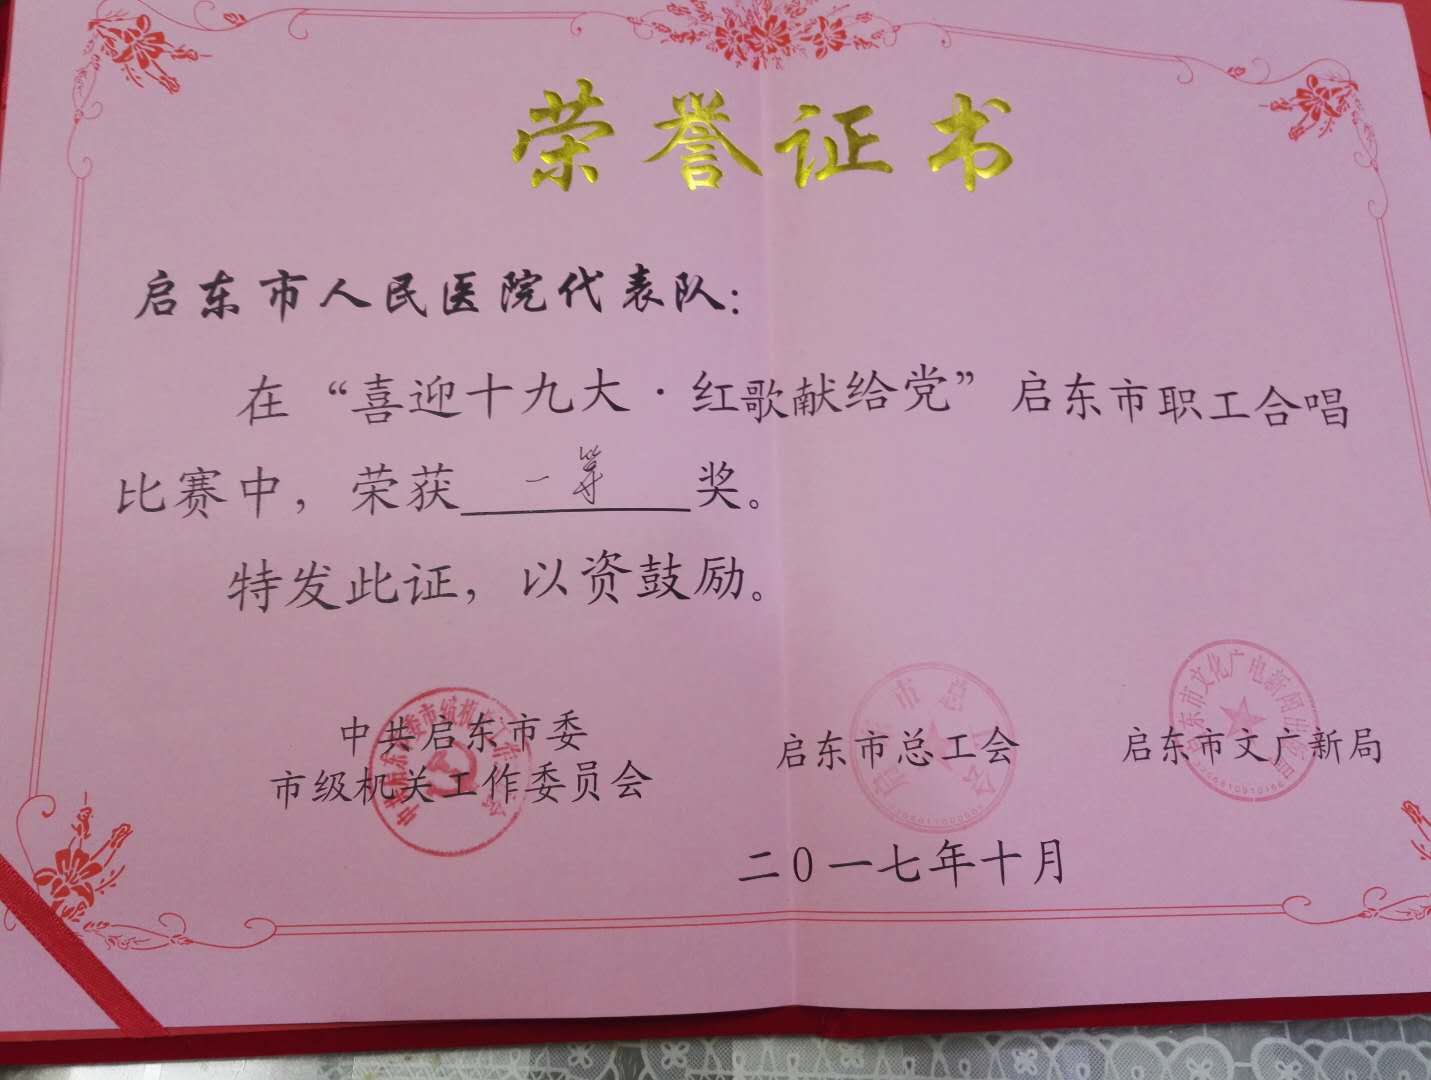 荣誉证书
启东市人民医院代表队：
在“喜迎十九大·红歌献给党”启东市职工合唱
比赛中，荣获一等奖。
特发此证，以资鼓励。
中共启东市委
市级机关工作委员会
启东市总工会
启东市文广新局
二0一七年十月